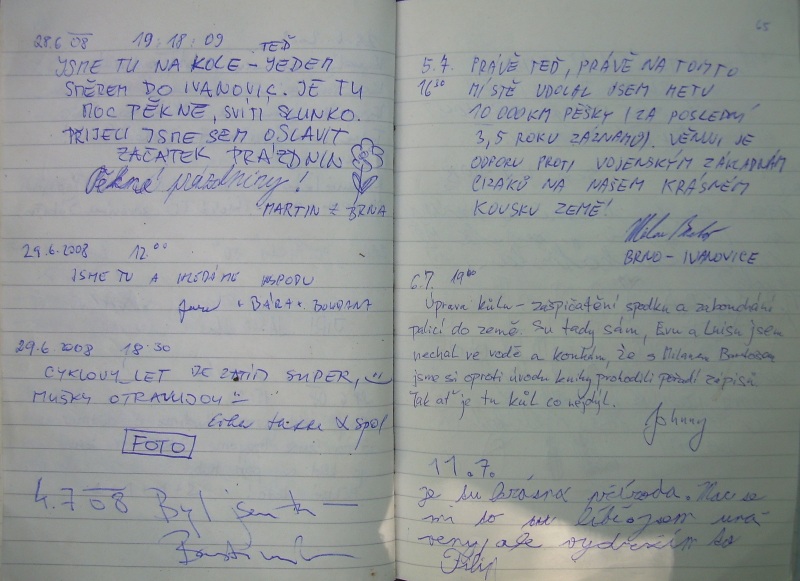 28.6 08 19:18:09
TEĎ
JSME TU NA KOLE - JEDEM
SMĚREM DO IVANOVIC. JE TU
MOC PĚKNĚ, SVÍTÍ SLUNKO.
PŘIJELI JSME SEM OSLAVIT
ZAČÁTEK PRÁZDNIN
Pěkné prázdniny!
MARTIN Z BRNA
29.6.2008 12.00
JSME TU A HLEDÁME HOSPODU
+ BÁRA + BOHDANA
29.6 2008 18:30
CYKLOVÝLET JE ZATÍM SUPER,
MUŠKY OTRAVUJOU
FOTO
4.7 08 Byl jsem tu
65
5.7. PRÁVĚ TEĎ, PRÁVĚ NA TOMTO
16 30 MÍSTĚ UDOLAL JSEM METU
10 000KM PĚŠKY (ZA POSLEDNÍ
3,5 ROKU ZÁZNAMŮ). VĚNUJI JE
ODPORU PROTI VOJENSKÝM ZÁKLADNÁM
CIZÁKŮ NA NAŠEM KRÁSNÉM
KOUSKU ZEMĚ!
BRNO - IVANOVICE
6.7. 19 00
Úprava kůlu - zašpičatění spodku a zabouchání
palicí do země. Su tady sám, Evu a Luisu jsem
nechal ve vodě a koukám, že s Milanem
jsme si oproti úvodu knihy prohodili pořadí zápisů.
Tak ať je tu kůl co nejdýl.
Johnny
11.7.
je tu krásná příroda. Moc se
mi to tu líbí, jsem una
vený, ale vydržím to
Filip